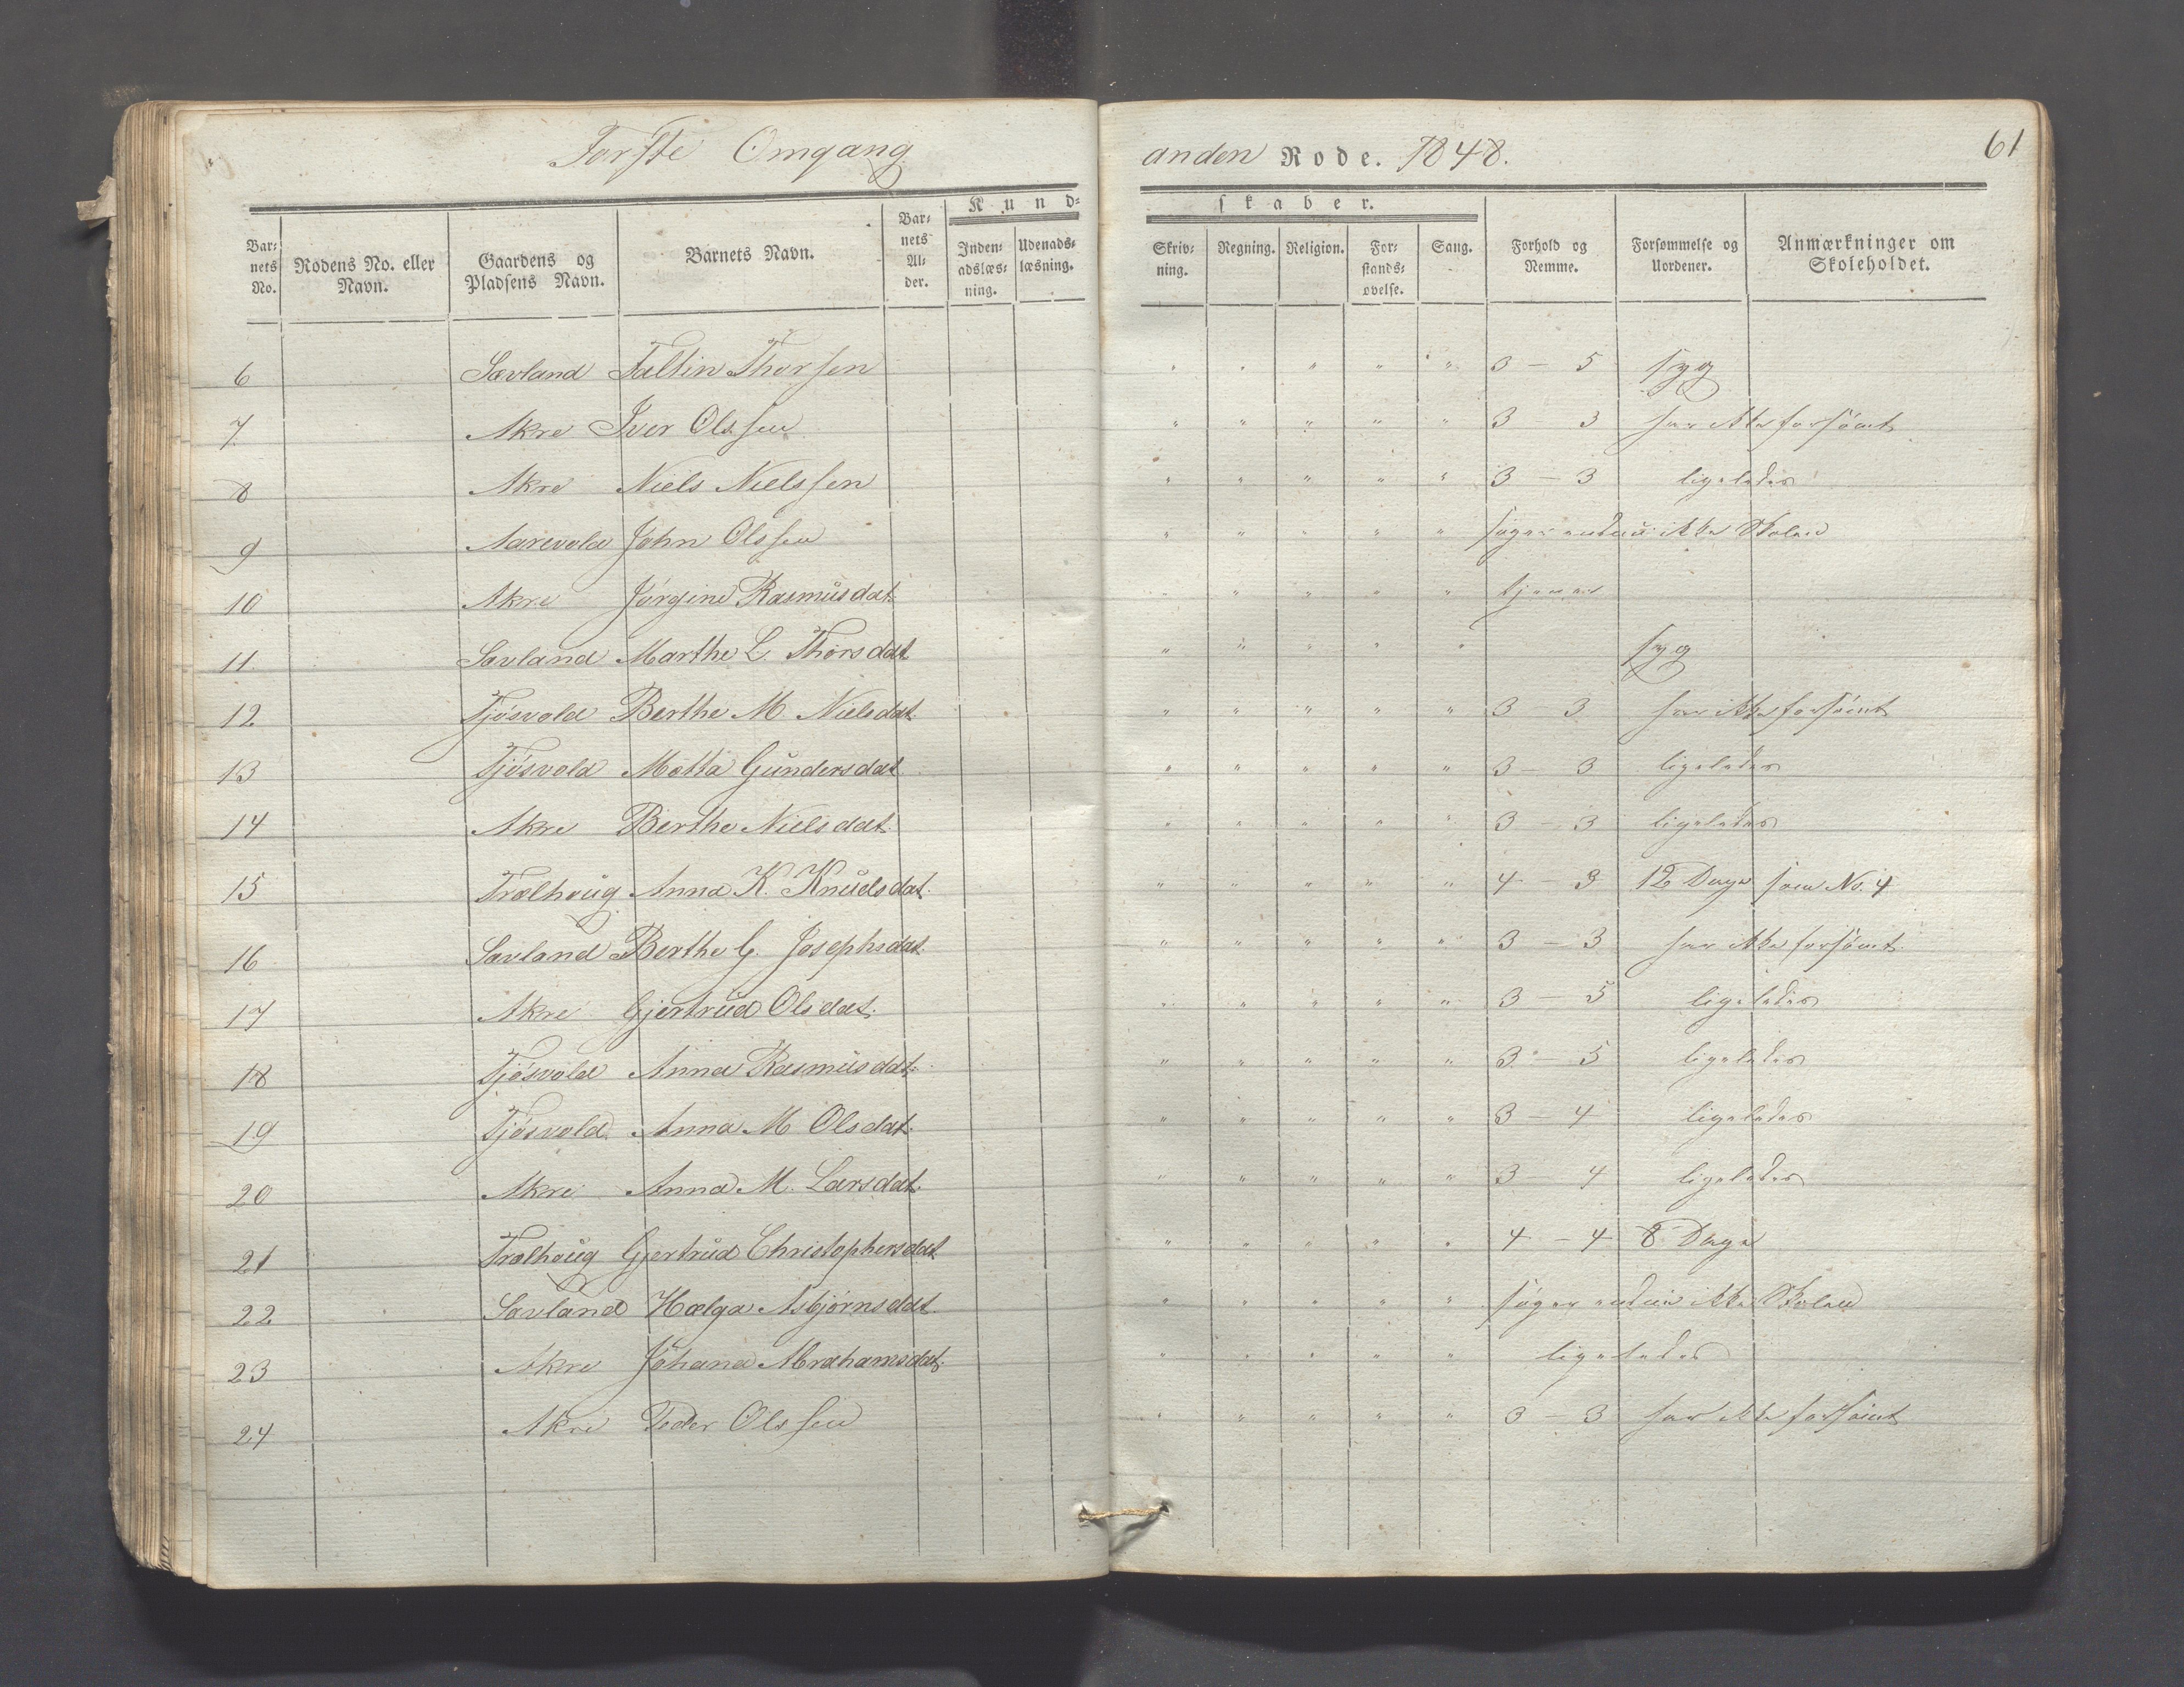 Første Omgang
anden Rode. 1848.
61
Kund-
skaber.
Bar-
nets
No.
Rodens No. eller
Navn.
Gaardens og
Pladsens Navn.
Barnets Navn.
Bar-
nets
Al-
der.
Inden-
adslæs-
ning.
Udenads-
læsning.
Skriv-
ning.
Regning.
Religion.
For-
stands-
øvelse.
Sang.
Forhold og
Nemme.
Forsømmelse og
Uordener.
Anmærkninger om
Skoleholdet.
6 Sævland Faltin Thorsen " " " " " 3 – 5 syg
7. Akre Iver Olssen " " " " " 3 – 3 har ikke forsömt
8 Akre Niels Nielssen " " " " " 3 – 3 ligeledes
9 Aarevold John Olssen " " " " " söger endnu ikke Skolen
10 Akre Jörgine Rasmusdat. " " " " " tjener
11. Sævland Marthe L. Thorsdat. " " " " " syg
12 Tjösvold Berthe M. Nielsdat. " " " " " 3 – 3 har ikke forsömt
13 Tjösvold Matta Gundersdat. " " " " " 3 – 3 ligeledes
14 Akre Berthe Nielsdat. " " " " " 3 – 3 ligeledes
15 Trælhoug Anna K. Knudsdat. " " " " " 4 – 3 12 Dage som No. 4
16 Sævland Berthe G. Josephsdat. " " " " " 3 – 3 har ikke forsömt
17 Akre Gjertrud Olsdat. " " " " " 3 – 5 ligeledes
18 Tjösvold Anna Rasmusdat. " " " " " 3 – 5 ligeledes
19 Tjösvold Anna M Olsdat. " " " " " 3 – 4 ligeledes
20 Akre Anna M. Larsdat. " " " " " 3 4 ligeledes
21 Trælhoug Gjertrud Christophersdat. " " " " " 4 – 4 8 Dage
22 Sævland Hælga Asbjörnsdat. " " " " " söger endnu ikke Skolen
23 Akre Johana Abrahamsdat. " " " " " ligeledes
24 Akre Peder Olssen " " " " " 3 – 3 har ikke forsömt